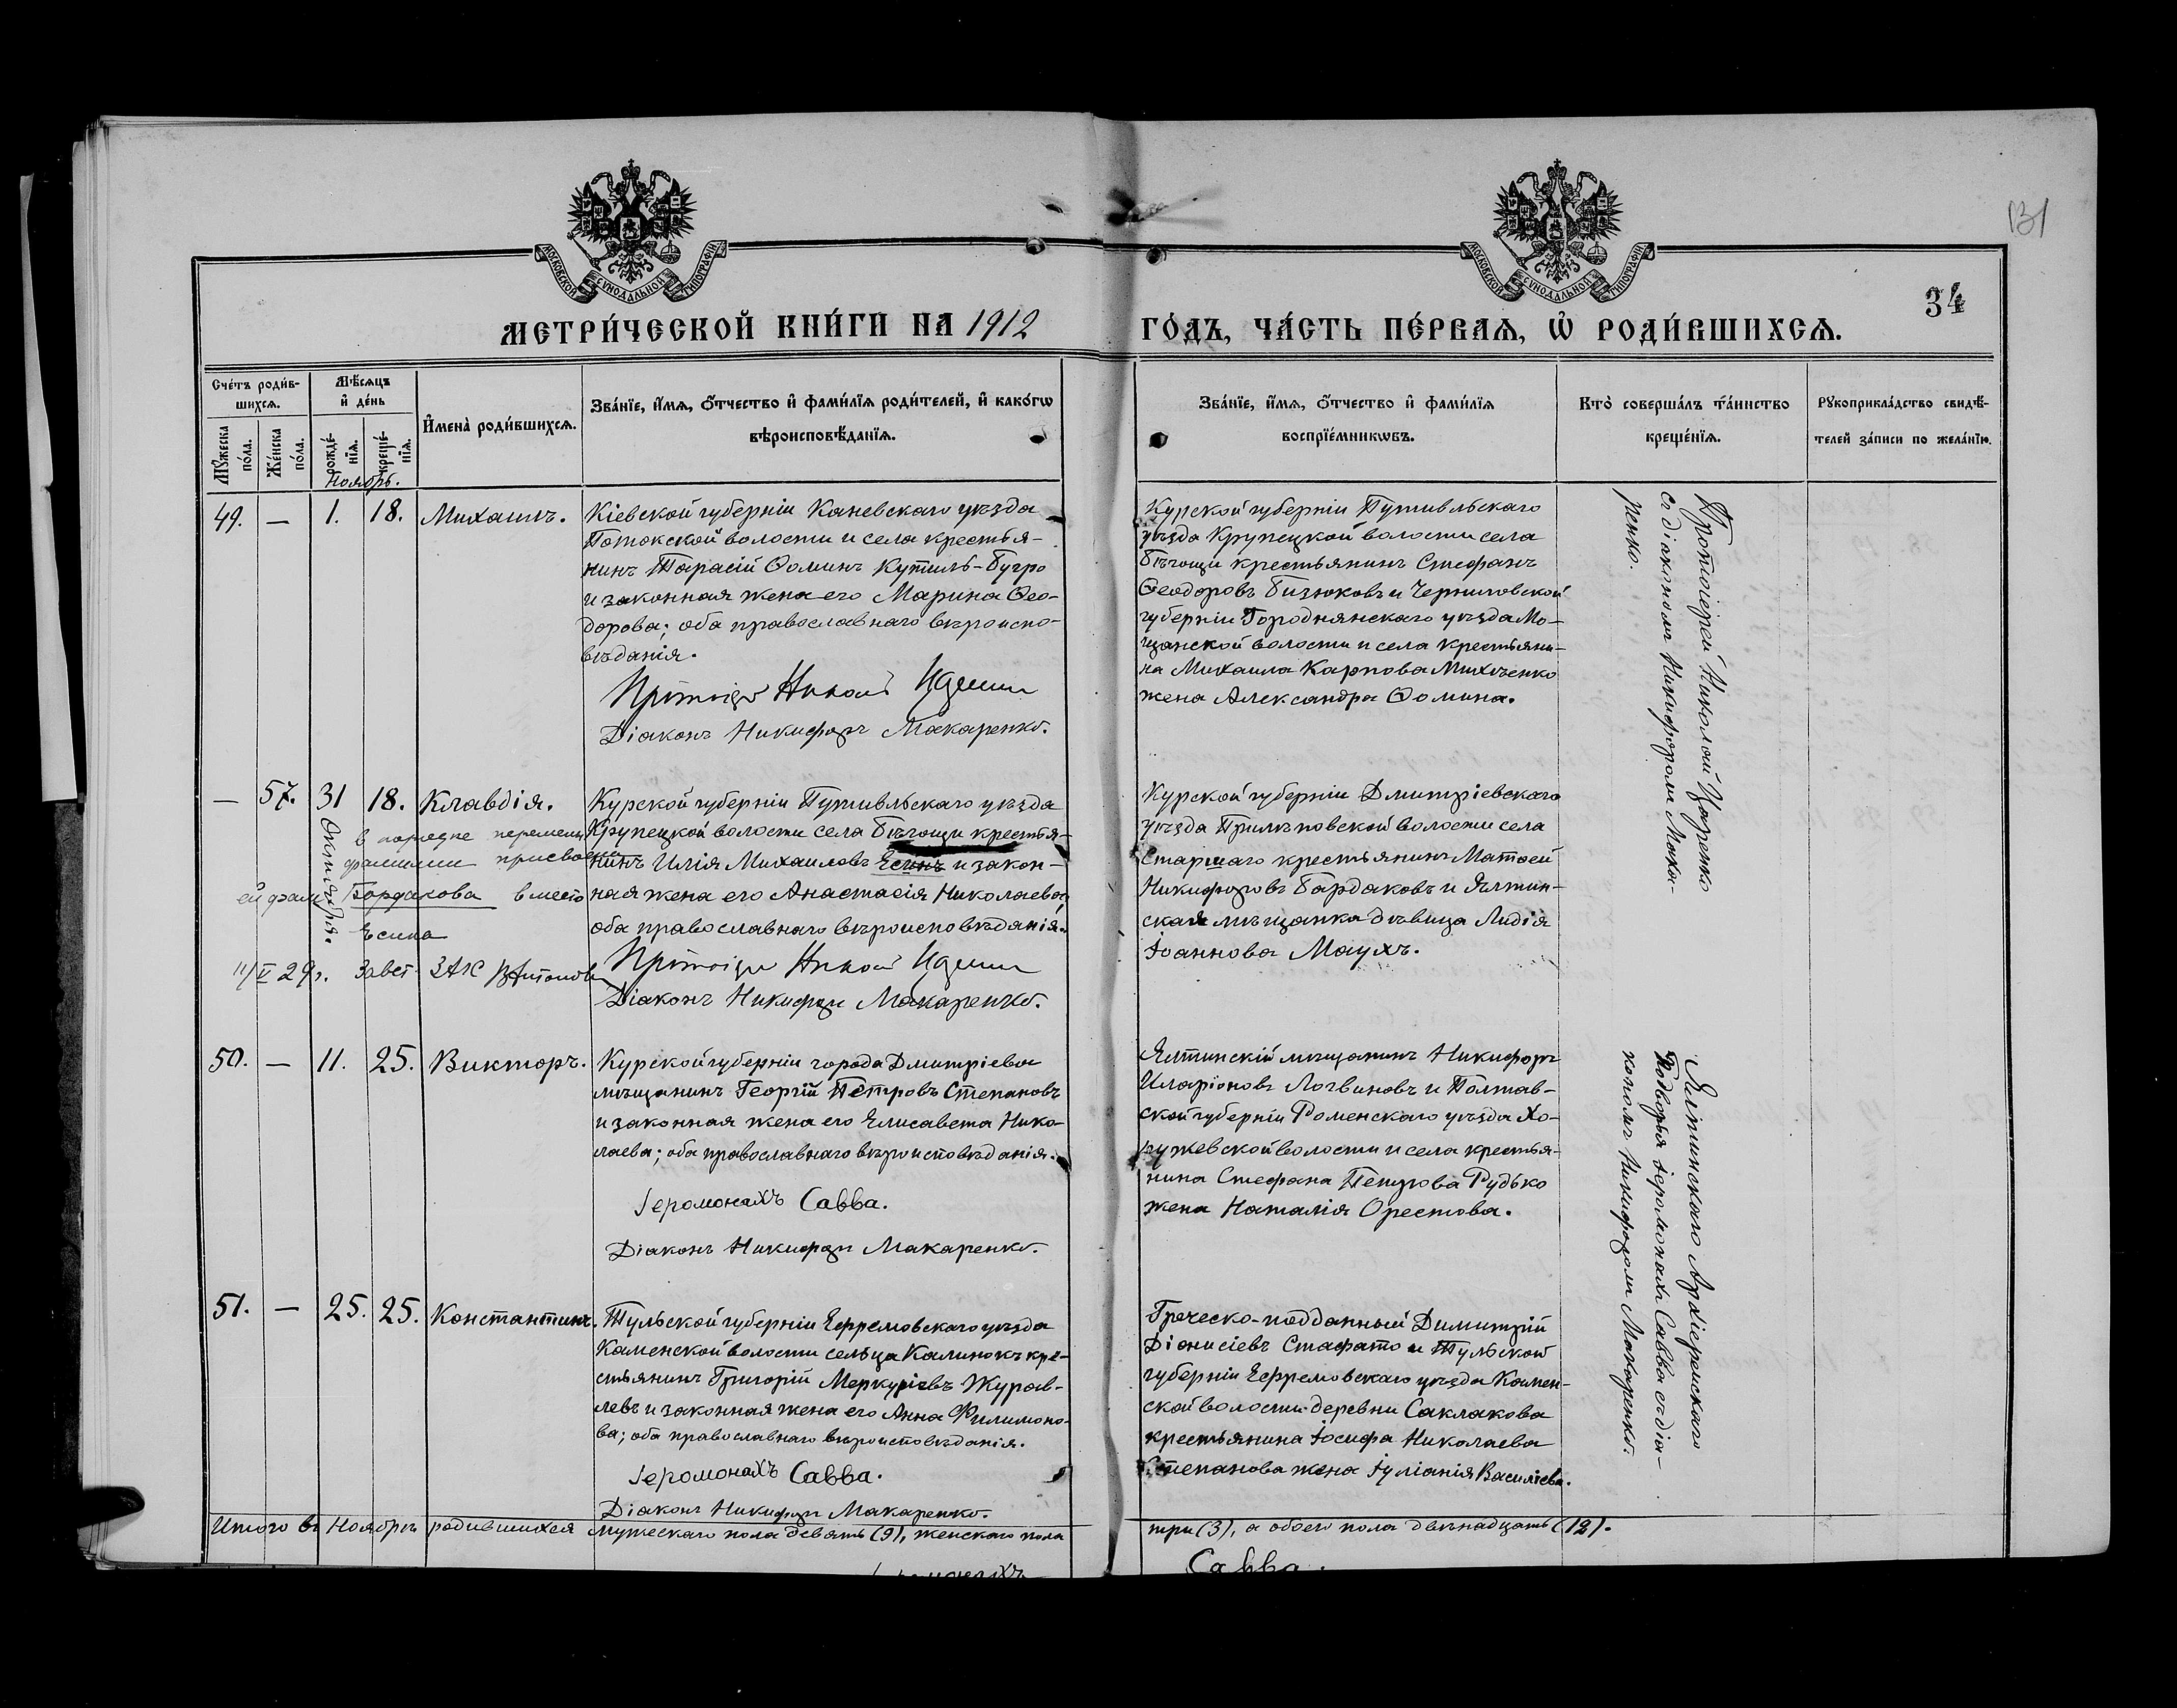 131
34
МОСКОВСКОЙ СѴНОДАЛЬНОЙ ТИПОГРАФІИ
МОСКОВСКОЙ СѴНОДАЛЬНОЙ ТИПОГРАФІИ
МЕТРИ́ЧЕСКОЙ КНИ́ГИ НА 1912 ГО́ДЪ, ЧА́СТЬ ПЕ́РВАѦ, Ѽ РОДИ́ВШИХСѦ.
Сче́тъ роди́в-
шихсѧ.
Мѹ́жеска по́ла.
Же́нска по́ла.
Мѣ́сѧцъ
и҆ де́нь
рожде́-
нїѧ.
креще́-
нїѧ.
И҆мена̀ роди́вшихсѧ.
Зва́нїе, и҆́мѧ, ѻ҆́тчество и҆ фами́лїѧ роди́телей, и҆ како́гѡ
вѣроисповѣ́данїѧ.
Зва́нїе, и҆́мѧ, ѻ҆́тчество и҆ фами́лїѧ
воспрїе́мникѡвъ.
Кто̀ соверша́лъ та́инство
креще́нїѧ.
Рꙋкоприкла́дство свидѣ́-
телей за́писи по жела́нїю.
Ноябрь.
49. — 1. 18. Михаилъ.
Кіевской губерніи Каневскаго уѣзда
Потокской волости и села крестья-
нинъ Тарасій Ѳоминъ Кутиль-Бугро
и законная жена его Марина Ѳео-
дорова; оба православнаго вѣроиспо-
вѣданія.
Діаконъ Никифоръ Макаренко.
Курской губерніи Путивльскаго
уѣзда Крупецкой волости села
Бѣгощи крестьянинъ Стефанъ
Ѳеодоровъ Бизюковъ и Черниговской
губерніи Городнянскаго уѣзда Мо-
щанской волости и села крестьяни-
на Михаила Карпова Михѣенко
жена Александра Ѳомина.
Протоіерей Николай Царенко
съ діакономъ Никифоромъ Мака-
ренко.
— 57. 31 18. Клавдія.
Октября.
в порядке перемены
фамилии присвоена
ей фам. Бардакова вместо
Есина
11/V 29 г. Завед. ЗАГС
Курской губерніи Путивльскаго уѣзда
Крупецкой волости села Бѣгощи крестья-
нинъ Илія Михаиловъ Есинъ и закон-
ная жена его Анастасія Николаева;
оба православнаго вѣроисповѣданія.
Діаконъ Никифоръ Макаренко.
Курской губерніи Дмитріевскаго
уѣзда Прилѣповской волости села
Старшаго крестьянинъ Матѳей
Никифоровъ Бардаковъ и Ялтин-
ская мѣщанка дѣвица Лидія
Іоаннова Маухъ.
50. — 11. 25. Викторъ.
Курской губерніи города Дмитріева
мѣщанинъ Георгій Петровъ Степановъ
и законная жена его Елисавета Нико-
лаева; оба православнаго вѣроисповѣданія.
Іеромонахъ Савва.
Діаконъ Никифоръ Макаренко.
Ялтинскій мѣщанинъ Никифоръ
Иларіоновъ Логвиновъ и Полтав-
ской губерніи Роменскаго уѣзда Хо-
ружевской волости и села крестья-
нина Стефана Петрова Рудько
жена Наталія Орестова.
Ялтинскаго Архіерейскаго
Подворья іеромонахъ Савва съ діа-
кономъ Никифоромъ Макаренко.
51. — 25. 25. Константинъ.
Тульской губерніи Ефремовскаго уѣзда
Каменской волости сельца Калинокъ кре-
стьянинъ Григорій Меркуріевъ Журав-
левъ и законная жена его Анна Филимоно-
ва; оба православнаго вѣроисповѣданія.
Іеромонахъ Савва.
Діаконъ Никифоръ Макаренко.
Греческо-подданный Димитрій
Діонисіевъ Стафато и Тульской
губерніи Ефремовскаго уѣзда Камен-
ской волости деревни Саклакова
крестьянина Іосифа Николаева
Степанова жена Іуліанія Василіева.
Итого въ Ноябрѣ родившихся мужескаго пола девять (9), женскаго пола три (3), а обоего пола двѣнадцать (12).
Савва.